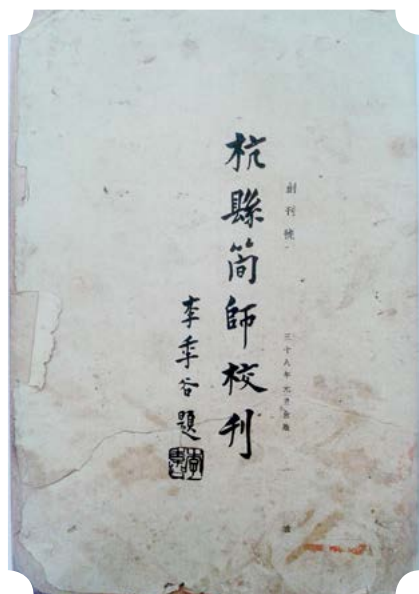 創刊號
三十八年元月出版
杭縣简師校刊
李季谷題